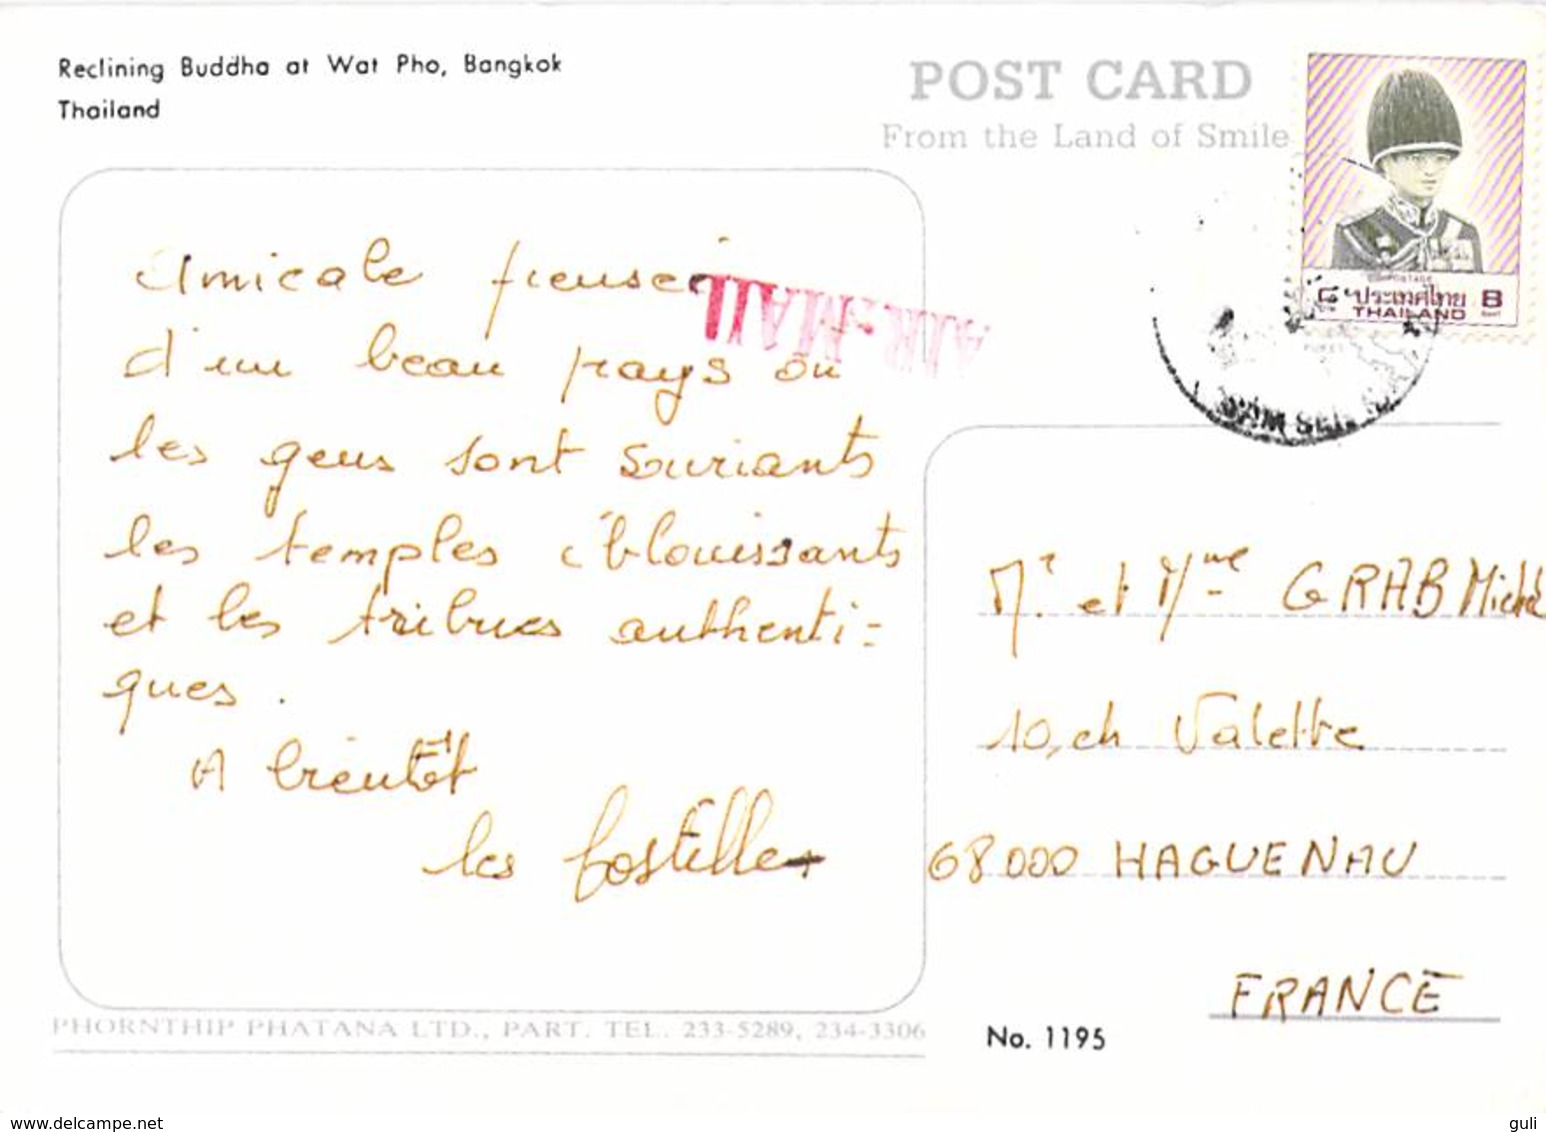 Reclining Buddha at Wat Pho, Bangkok
Thailand
POST CARD
From the Land of Smile
ประเทศไทย 8
THAILAND
AIR-MAIL
SAM SEN
Amicale pensée
d'un beau pays où
les gens sont souriants
les temples éblouissants
et les tribues authenti=
ques.
A bientôt
les
Mr. et Mme GRAB Michel
10, ch Valette
68000 HAGUENAU
FRANCE
PHORNTHIP PHATANA LTD., PART. TEL. 233-5289, 234-3306
No. 1195
www.delcampe.net
guli